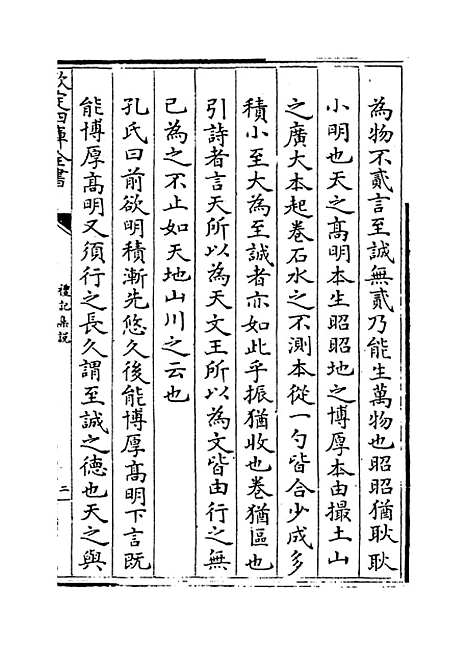 為物不貳言至誠無貳乃能生萬物也昭昭猶耿耿
小明也天之髙明本生昭昭地之博厚本由撮土山
之廣大本起卷石水之不測本從一勺皆合少成多
積小至大為至誠者亦如此乎振猶收也卷猶區也
引詩者言天所以為天文王所以為文皆由行之無
已為之不止如天地山川之云也
孔氏曰前欲明積漸先悠久後能博厚髙明下言既
能博厚髙明又須行之長久謂至誠之德也天之與
欽定四庫全書
禮記集說
二